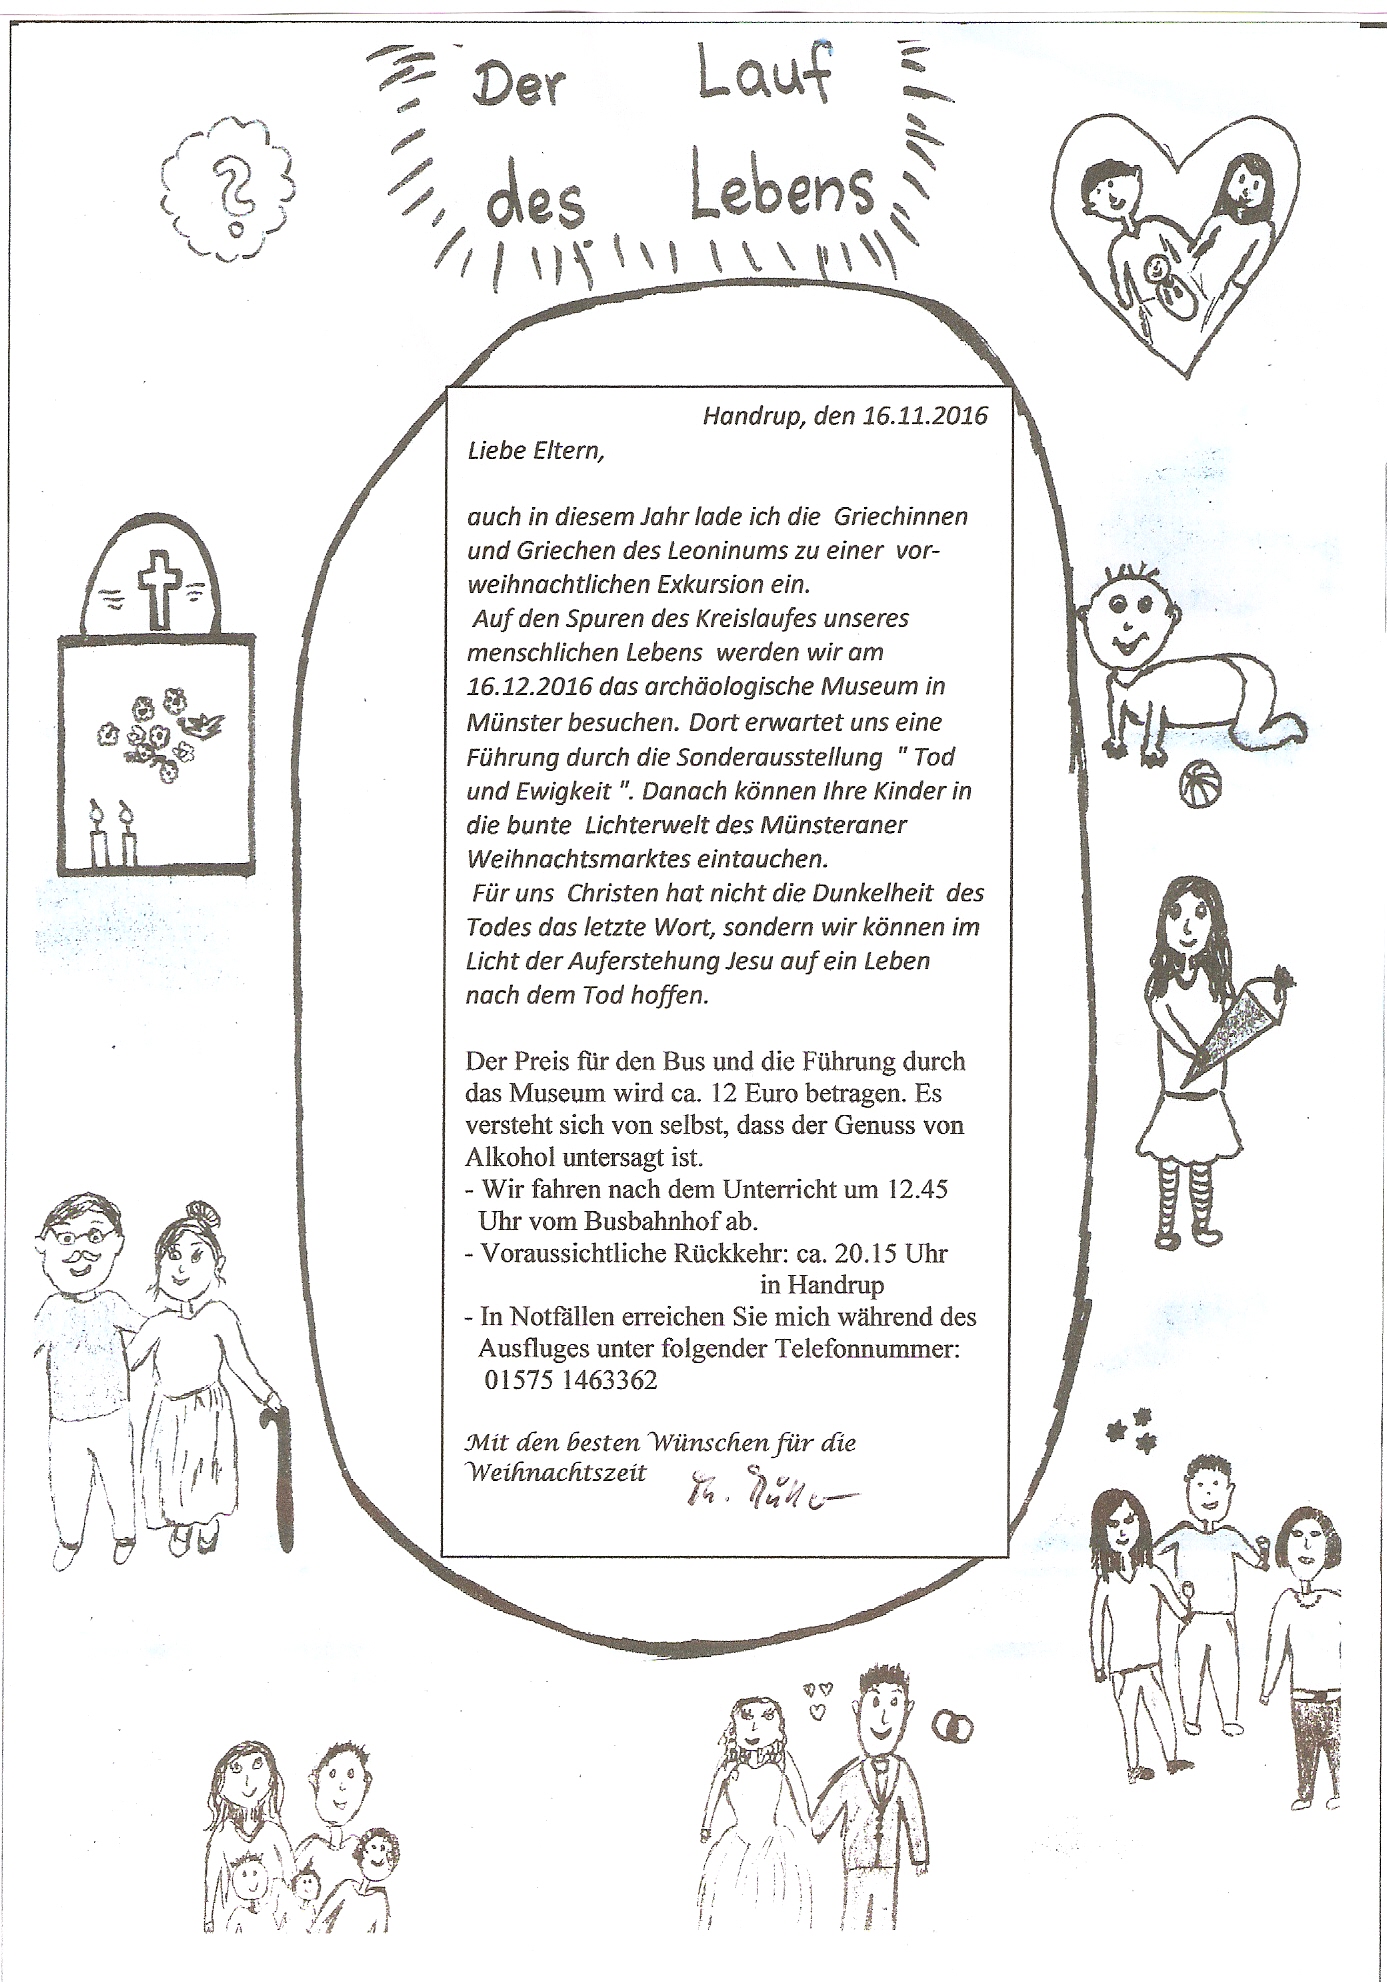 Der Lauf
des Lebens
?
Handrup, den 16.11.2016
Liebe Eltern,
auch in diesem Jahr lade ich die Griechinnen
und Griechen des Leoninums zu einer vor-
weihnachtlichen Exkursion ein.
Auf den Spuren des Kreislaufes unseres
menschlichen Lebens werden wir am
16.12.2016 das archäologische Museum in
Münster besuchen. Dort erwartet uns eine
Führung durch die Sonderausstellung " Tod
und Ewigkeit ". Danach können Ihre Kinder in
die bunte Lichterwelt des Münsteraner
Weihnachtsmarktes eintauchen.
Für uns Christen hat nicht die Dunkelheit des
Todes das letzte Wort, sondern wir können im
Licht der Auferstehung Jesu auf ein Leben
nach dem Tod hoffen.
Der Preis für den Bus und die Führung durch
das Museum wird ca. 12 Euro betragen. Es
versteht sich von selbst, dass der Genuss von
Alkohol untersagt ist.
- Wir fahren nach dem Unterricht um 12.45
Uhr vom Busbahnhof ab.
- Voraussichtliche Rückkehr: ca. 20.15 Uhr
in Handrup
- In Notfällen erreichen Sie mich während des
Ausfluges unter folgender Telefonnummer:
01575 1463362
Mit den besten Wünschen für die
Weihnachtszeit